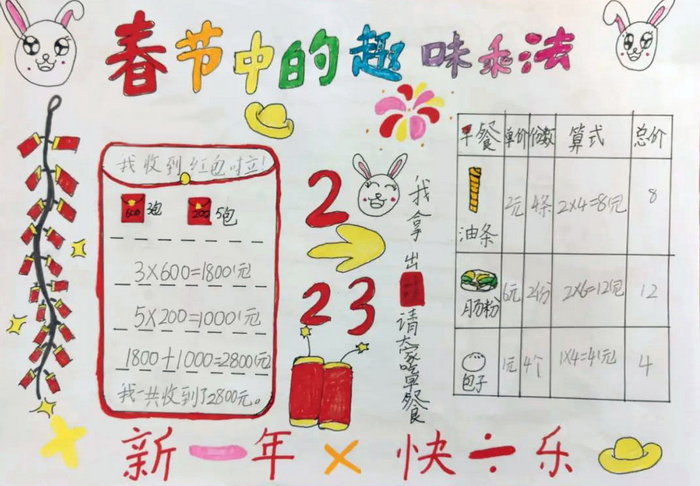 春节中的趣味乘法
我收到红包啦!
600 3包 200 5包
3×600=1800元
5×200=1000元
1800+1000=2800元
我一共收到了2800元。
2023
我拿出
请大家吃早餐
早餐 单价 份数 算式 总价
油条 2元 4条 2×4=8元 8
肠粉 6元 2份 2×6=12元 12
包子 1元 4个 1×4=4元 4
新一年×快÷乐